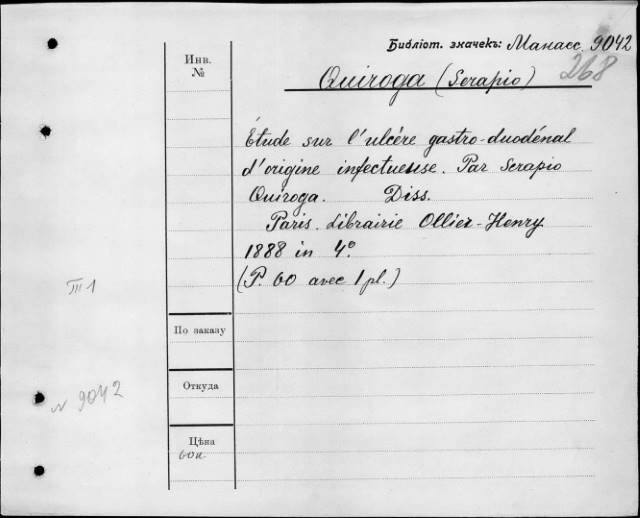 Библіот. значекъ: Манасс. 9042
268
Quiroga (Serapio)
Инв.
№
Étude sur l'ulcére gastro-duodénal
d'origine infectueuse. Par Serapio
Quiroga. Diss.
Paris. Librairie Ollier-Henry
1888 in 4°.
(P. 60 avec 1 pl.)
III 1
По заказу
Откуда
№ 9042
Цѣна
60 к.